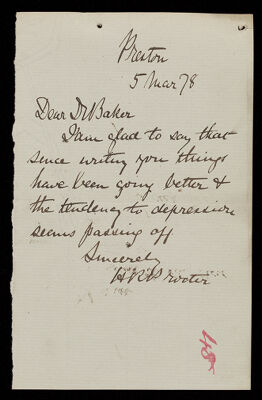 Preston
5 Mar 78
Dear Dr Baker
I am glad to say that
since writing you things
have been going better &
the tendency to depression
seems passing off
Sincerely
H R Procter
48